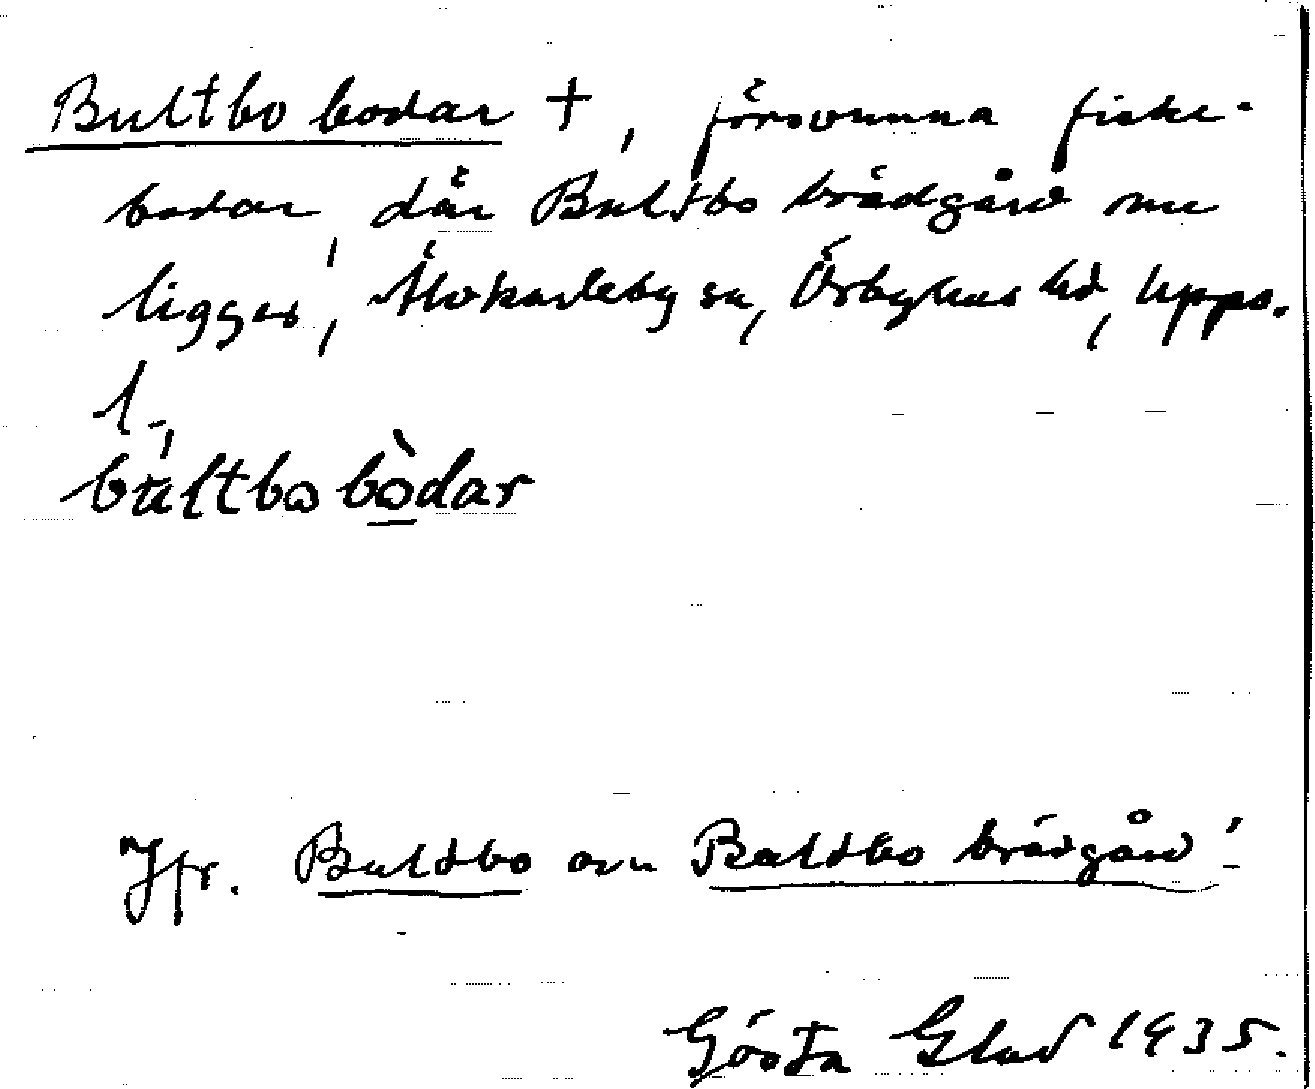 Bultbo bodar †, försvunna fiske-
bodar, där Bultbo brädgård nu
ligger, Älvkarleby sn, Örbyhus hd, Upps.
l.
bultbo bòdar
Jfr. Bultbo och Bultbo brädgård!
Gösta Glad 1935.